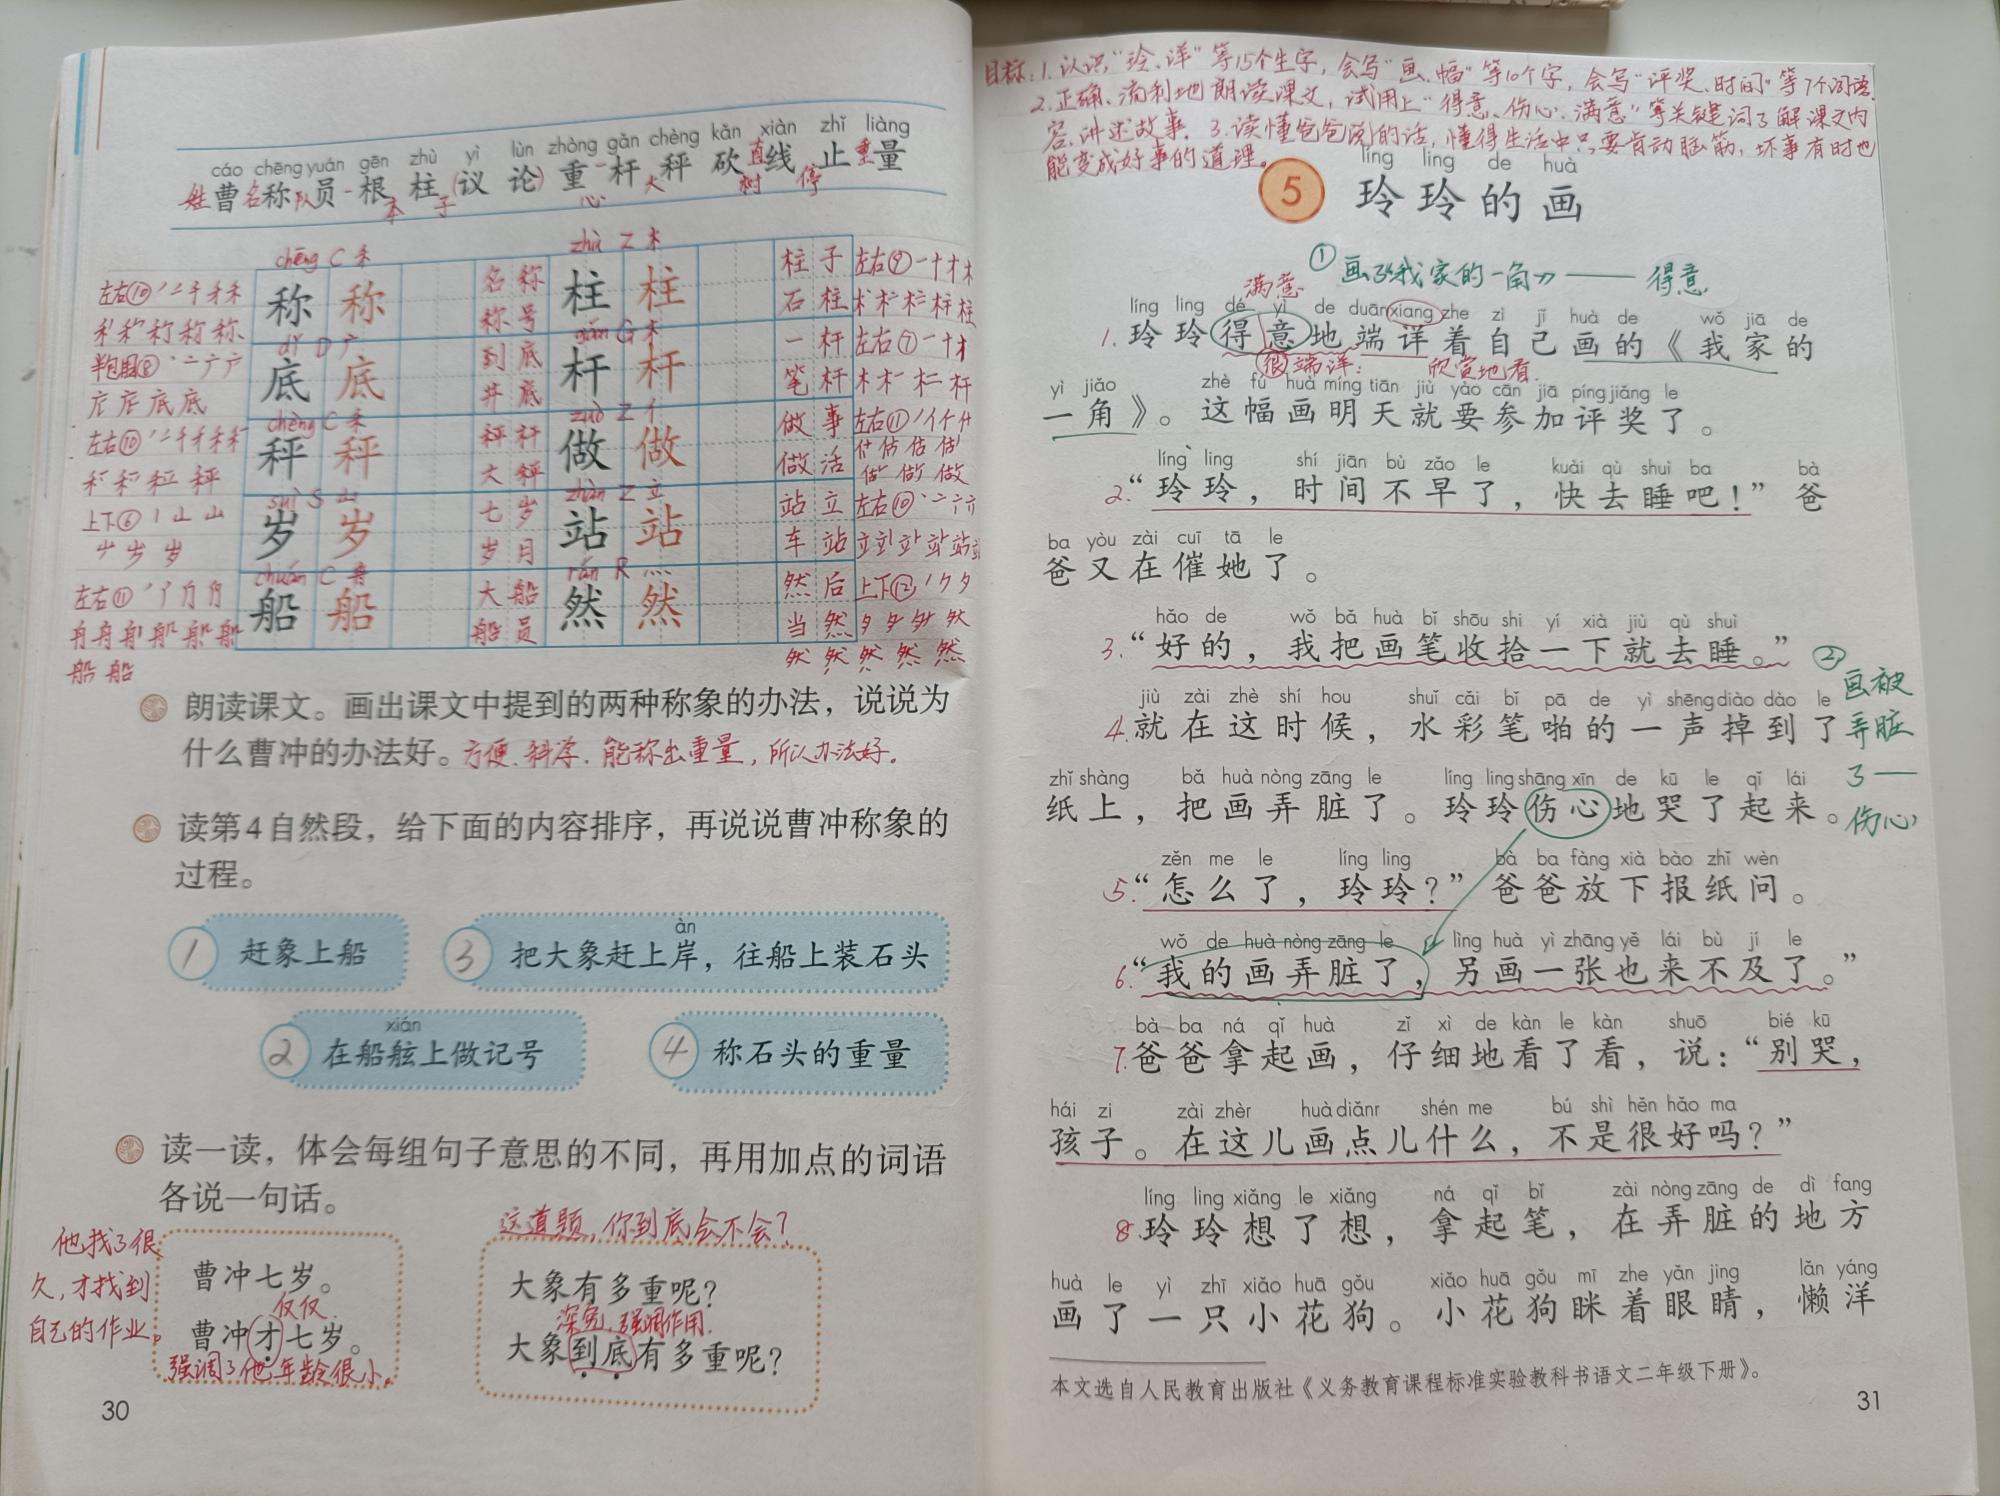 cáo chēng yuán gēn zhù yì lùn zhòng gǎn chèng kǎn xiàn zhǐ liàng
姓曹 名称 队员 一根 柱 (议 论) 重 一杆 秤 砍 直线 止 重量
本 子 心 大 树 停
chēng C 禾 zhù Z 木
左右⑩ 称 称 名称 柱 柱 柱子 左右⑨
称号 石柱
dǐ D 广 gǎn G 木
半包围⑧ 底 底 到底 杆 杆 一杆 左右⑦
井底 笔杆
chèng C 禾 zuò Z 亻
左右⑩ 秤 秤 秤杆 做 做 做事 左右⑪
大秤 做活
suì S 山 zhàn Z 立
上下⑥ 岁 岁 七岁 站 站 站立 左右⑩
岁月 车站
chuán C 舟 rán R 灬
左右⑪ 船 船 大船 然 然 然后 上下⑫
船员 当然
朗读课文。画出课文中提到的两种称象的办法，说说为
什么曹冲的办法好。方便、科学、能称出重量，所以办法好。
读第4自然段，给下面的内容排序，再说说曹冲称象的
过程。
àn
1 赶象上船 3 把大象赶上岸，往船上装石头
xián
2 在船舷上做记号 4 称石头的重量
读一读，体会每组句子意思的不同，再用加点的词语
各说一句话。
他找了很
久，才找到
自己的作业。
曹冲七岁。
仅仅
曹冲才七岁。
强调了他年龄很小。
这道题，你到底会不会？
大象有多重呢？
深究、强调作用.
大象到底有多重呢？
30
目标：1.认识“玲、详”等15个生字，会写“画、幅”等10个字，会写“评奖、时间”等7个词语.
2.正确、流利地朗读课文，试用上“得意、伤心、满意”等关键词了解课文内
容,讲述故事. 3.读懂爸爸说的话，懂得生活中只要肯动脑筋，坏事有时也
能变成好事的道理。
líng ling de huà
5 玲玲的画
①画了《我家的一角》——得意
满意
líng ling dé yì de duān xiang zhe zì jǐ huà de wǒ jiā de
1.玲玲得意地端详着自己画的《我家的
很 端详：欣赏地看
yì jiǎo zhè fú huà míng tiān jiù yào cān jiā píng jiǎng le
一角》。这幅画明天就要参加评奖了。
líng ling shí jiān bù zǎo le kuài qù shuì ba bà
2.“玲玲，时间不早了，快去睡吧！”爸
ba yòu zài cuī tā le
爸又在催她了。
hǎo de wǒ bǎ huà bǐ shōu shi yí xià jiù qù shuì
3.“好的，我把画笔收拾一下就去睡。”
②画被
弄脏
了——
伤心
jiù zài zhè shí hou shuǐ cǎi bǐ pā de yì shēng diào dào le
4.就在这时候，水彩笔啪的一声掉到了
zhǐ shàng bǎ huà nòng zāng le líng ling shāng xīn de kū le qǐ lái
纸上，把画弄脏了。玲玲伤心地哭了起来。
zěn me le líng ling bà ba fàng xià bào zhǐ wèn
5.“怎么了，玲玲？”爸爸放下报纸问。
wǒ de huà nòng zāng le lìng huà yì zhāng yě lái bù jí le
6.“我的画弄脏了，另画一张也来不及了。”
bà ba ná qǐ huà zǐ xì de kàn le kàn shuō bié kū
7.爸爸拿起画，仔细地看了看，说：“别哭，
hái zi zài zhèr huà diǎnr shén me bú shì hěn hǎo ma
孩子。在这儿画点儿什么，不是很好吗？”
líng ling xiǎng le xiǎng ná qǐ bǐ zài nòng zāng de dì fang
8.玲玲想了想，拿起笔，在弄脏的地方
huà le yì zhī xiǎo huā gǒu xiǎo huā gǒu mī zhe yǎn jing lǎn yáng
画了一只小花狗。小花狗眯着眼睛，懒洋
本文选自人民教育出版社《义务教育课程标准实验教科书语文二年级下册》。
31